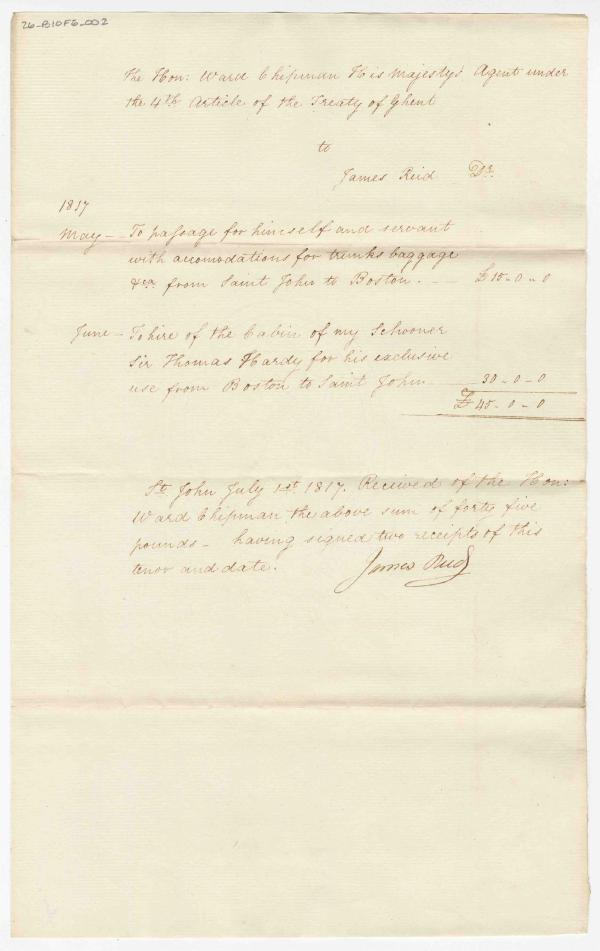 26-B10F6-002
The Hon: Ward Chipman His Majesty's Agent under
the 4th Article of the Treaty of Ghent
to
James Reid Dr.
1817
May - To passage for himself and servant
with accomodations for trunks baggage
&ca from Saint John to Boston. - £ 15-0-0
June - To hire of the Cabin of my Schooner
Sir Thomas Hardy for his exclusive
use from Boston to Saint John 30-0-0
£ 45-0-0
St John July 1st 1817. Received of the Hon:
Ward Chipman the above sum of forty five
pounds - having signed two receipts of this
tenor and date. James Reid